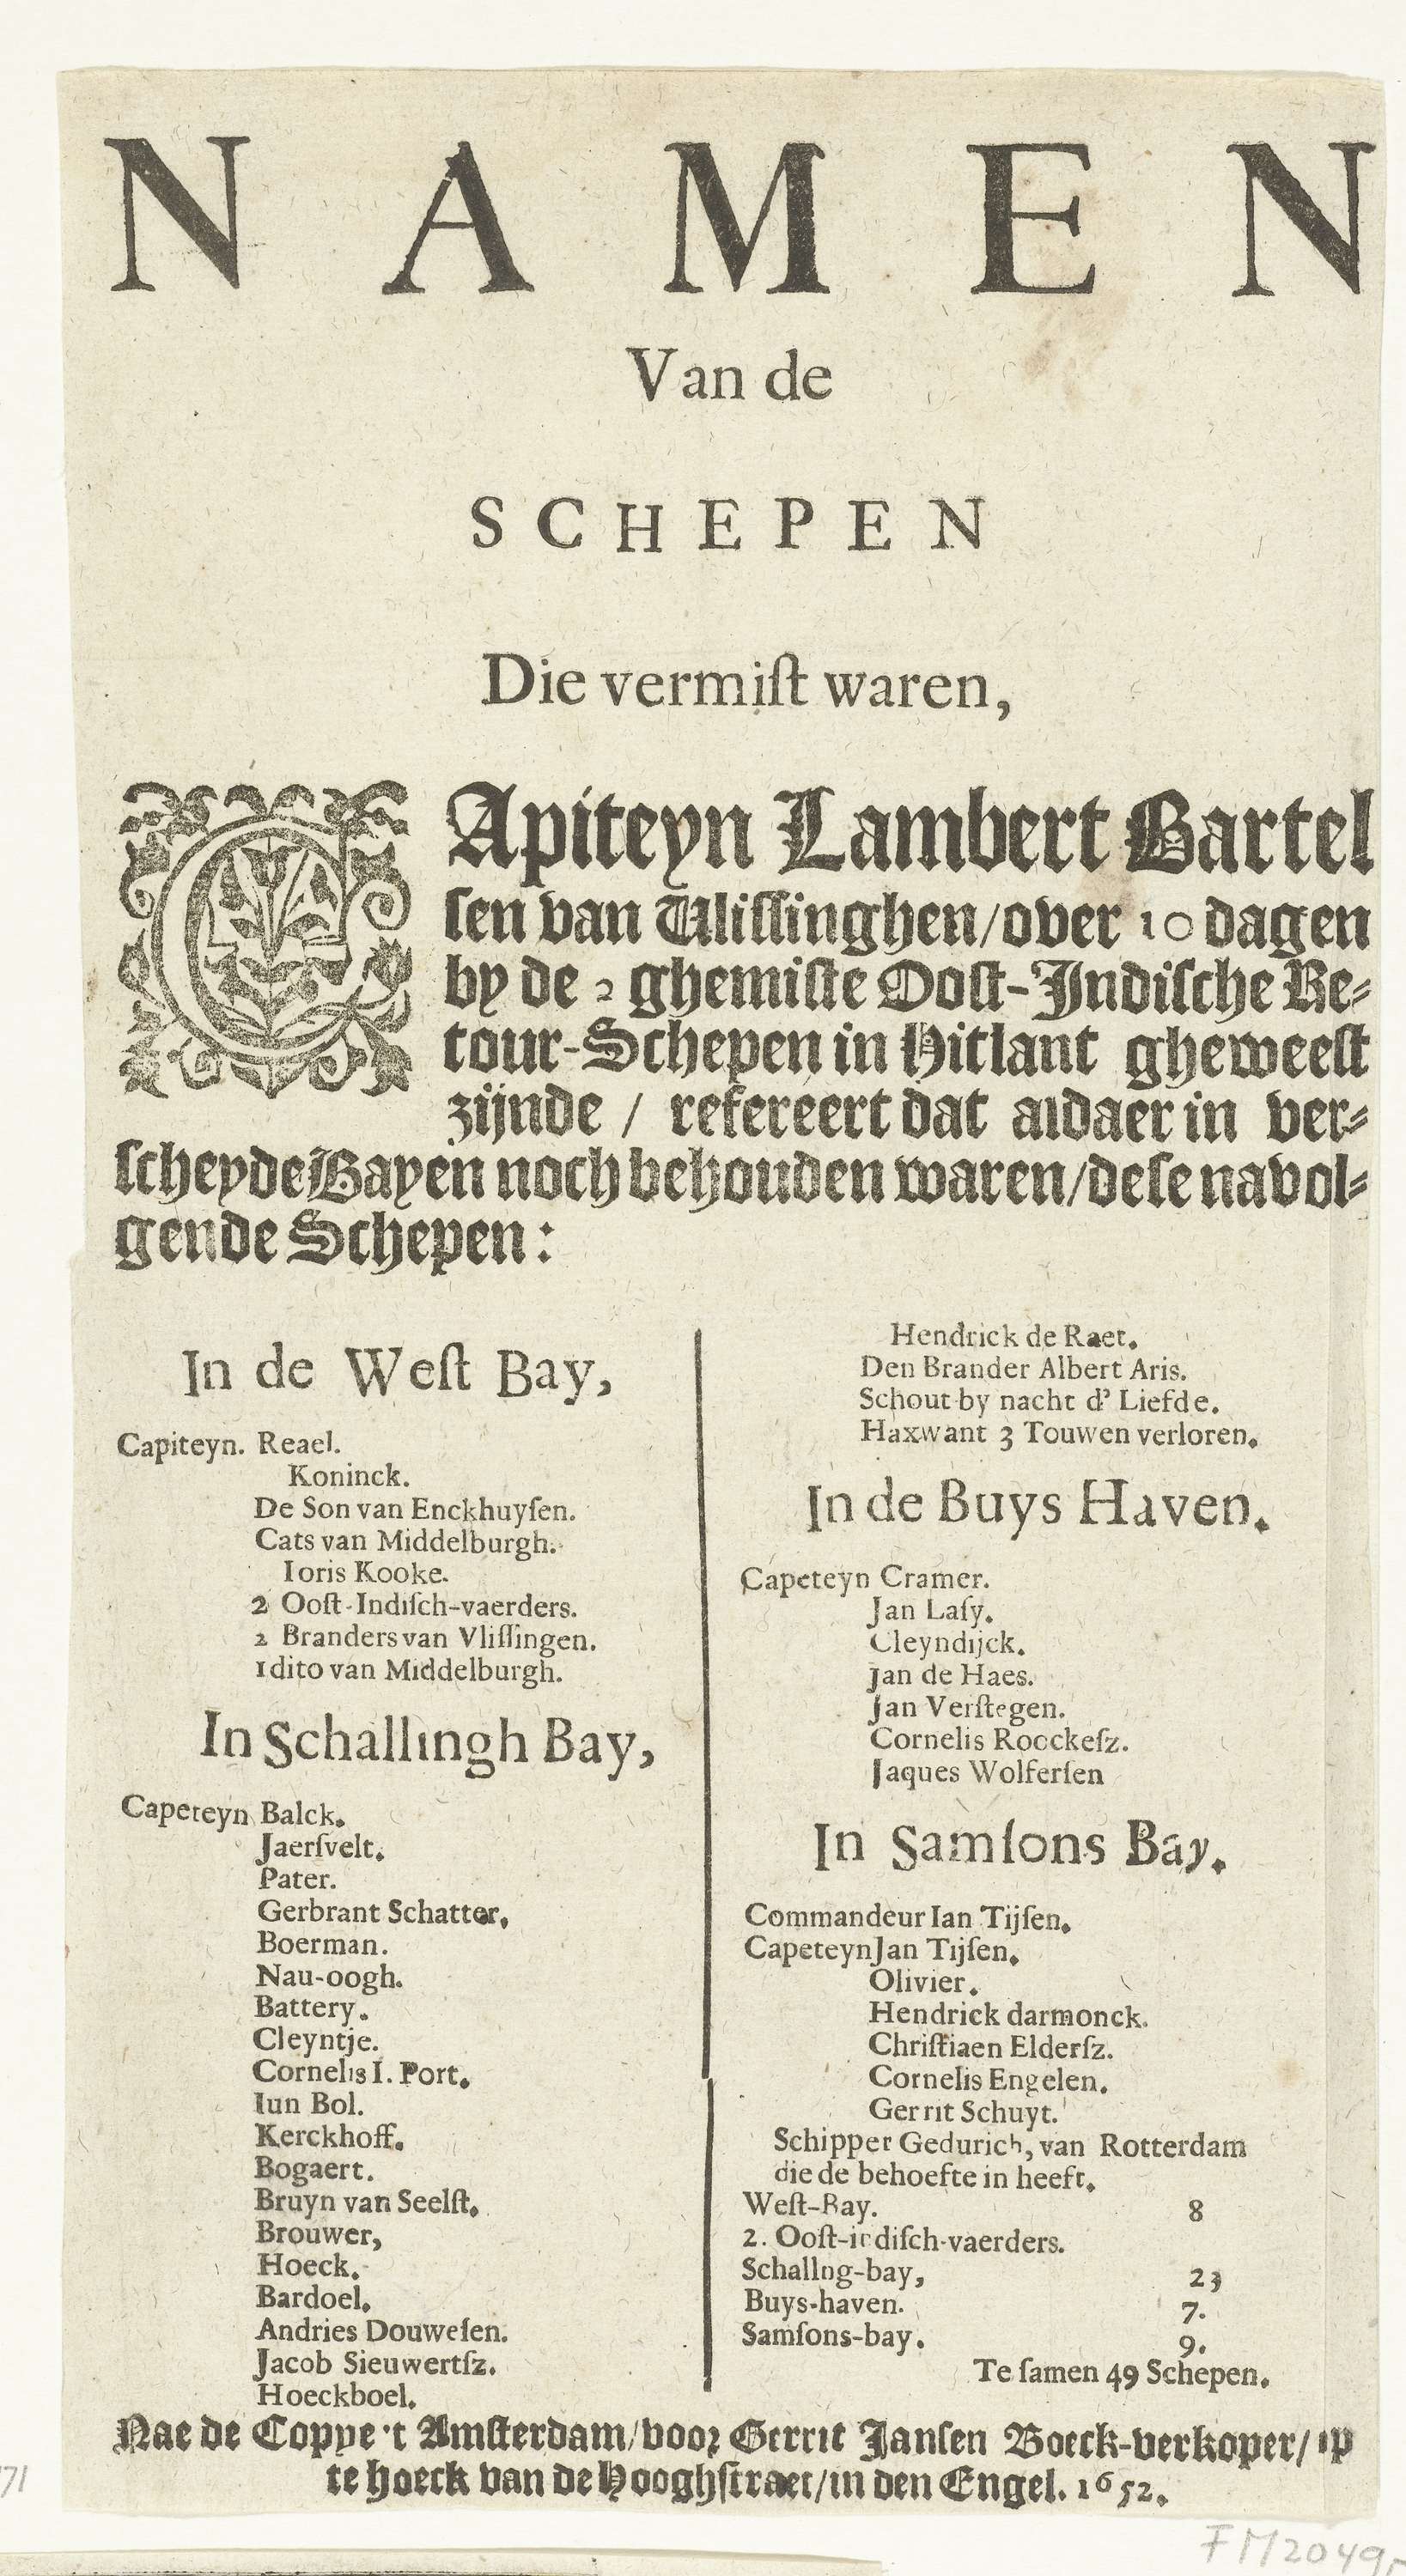 NAMEN
Van de
SCHEPEN
Die vermiſt waren,
CApiteyn Lambert Bartel
ſen van Vliſſinghen/over 10 dagen
by de 2 ghemiſte Ooſt-Indiſche Re-
tour-Schepen in Hitlant gheweeſt
zijnde / refereert dat aldaer in ver-
ſcheyde Bayen noch behouden waren/deſe navol-
gende Schepen:
In de Weſt Bay,
Capiteyn. Reael.
Koninck.
De Son van Enckhuyſen.
Cats van Middelburgh.
Ioris Kooke.
2 Ooſt-Indiſch-vaerders.
2 Branders van Vliſſingen.
1 dito van Middelburgh.
In Schallingh Bay,
Capeteyn Balck.
Jaerſvelt.
Pater.
Gerbrant Schatter.
Boerman.
Nau-oogh.
Battery.
Cleyntje.
Cornelis I. Port.
Iun Bol.
Kerckhoff.
Bogaert.
Bruyn van Seelſt.
Brouwer,
Hoeck.
Bardoel.
Andries Douweſen.
Jacob Sieuwertſz.
Hoeckboel.
Hendrick de Raet.
Den Brander Albert Aris.
Schout by nacht d' Liefde.
Haxwant 3 Touwen verloren.
In de Buys Haven.
Capeteyn Cramer.
Jan Laſy.
Cleyndijck.
Jan de Haes.
Jan Verſtegen.
Cornelis Roockeſz.
Jaques Wolferſen
In Samſons Bay.
Commandeur Ian Tijſen.
Capeteyn Jan Tijſen.
Olivier.
Hendrick darmonck.
Chriſtiaen Elderſz.
Cornelis Engelen.
Gerrit Schuyt.
Schipper Gedurich, van Rotterdam
die de behoefte in heeft.
Weſt-Bay. 8
2. Ooſt-indiſch-vaerders.
Schallng-bay, 23
Buys-haven. 7.
Samſons-bay. 9.
Te ſamen 49 Schepen.
Nae de Coppye 't Amſterdam/voor Gerrit Janſen Boeck-verkoper/ op
te hoeck van de Hooghſtraet/in den Engel. 1652.
71
FM2049